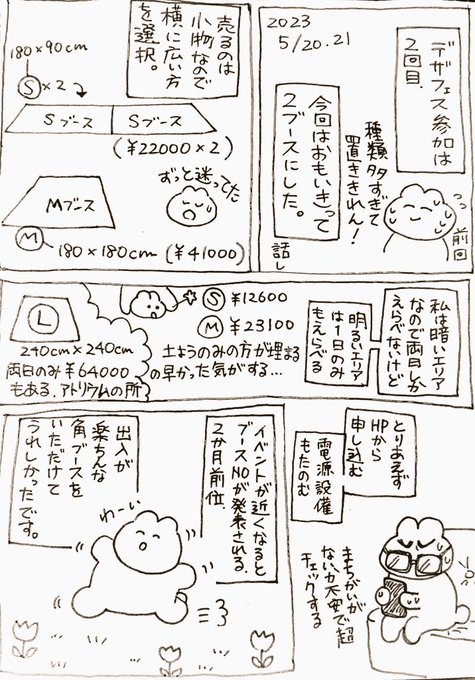 2023
5/20.21
デザフェス参加は
2回目.
種類多すぎて
置ききれん!
前回
今回はおもいきって
2ブースにした。
話し
売るのは
小物なので
横に広い方
を選択。
180×90cm
S×2
Sブース
Sブース
(¥22000×2)
ずっと迷ってた
Mブース
M
180×180cm (¥41000)
私は暗いエリア
なので両日しか
えらべないけど
明るいエリア
は1日のみ
もえらべる
S ¥12600
M ¥23100
土ようのみの方が埋まる
の早かった気がする…
L
240cm×240cm
両日のみ¥64000
もある.アトリウムの所
とりあえず
HPから
申し込む
電源設備
もたのむ
まちがいが
ないか大安で超
チェックする
イベントが近くなると
ブースNOが発表される.
2か月前位.
出入が
楽ちんな
角ブースを
いただけて
うれしかったです。
わーい